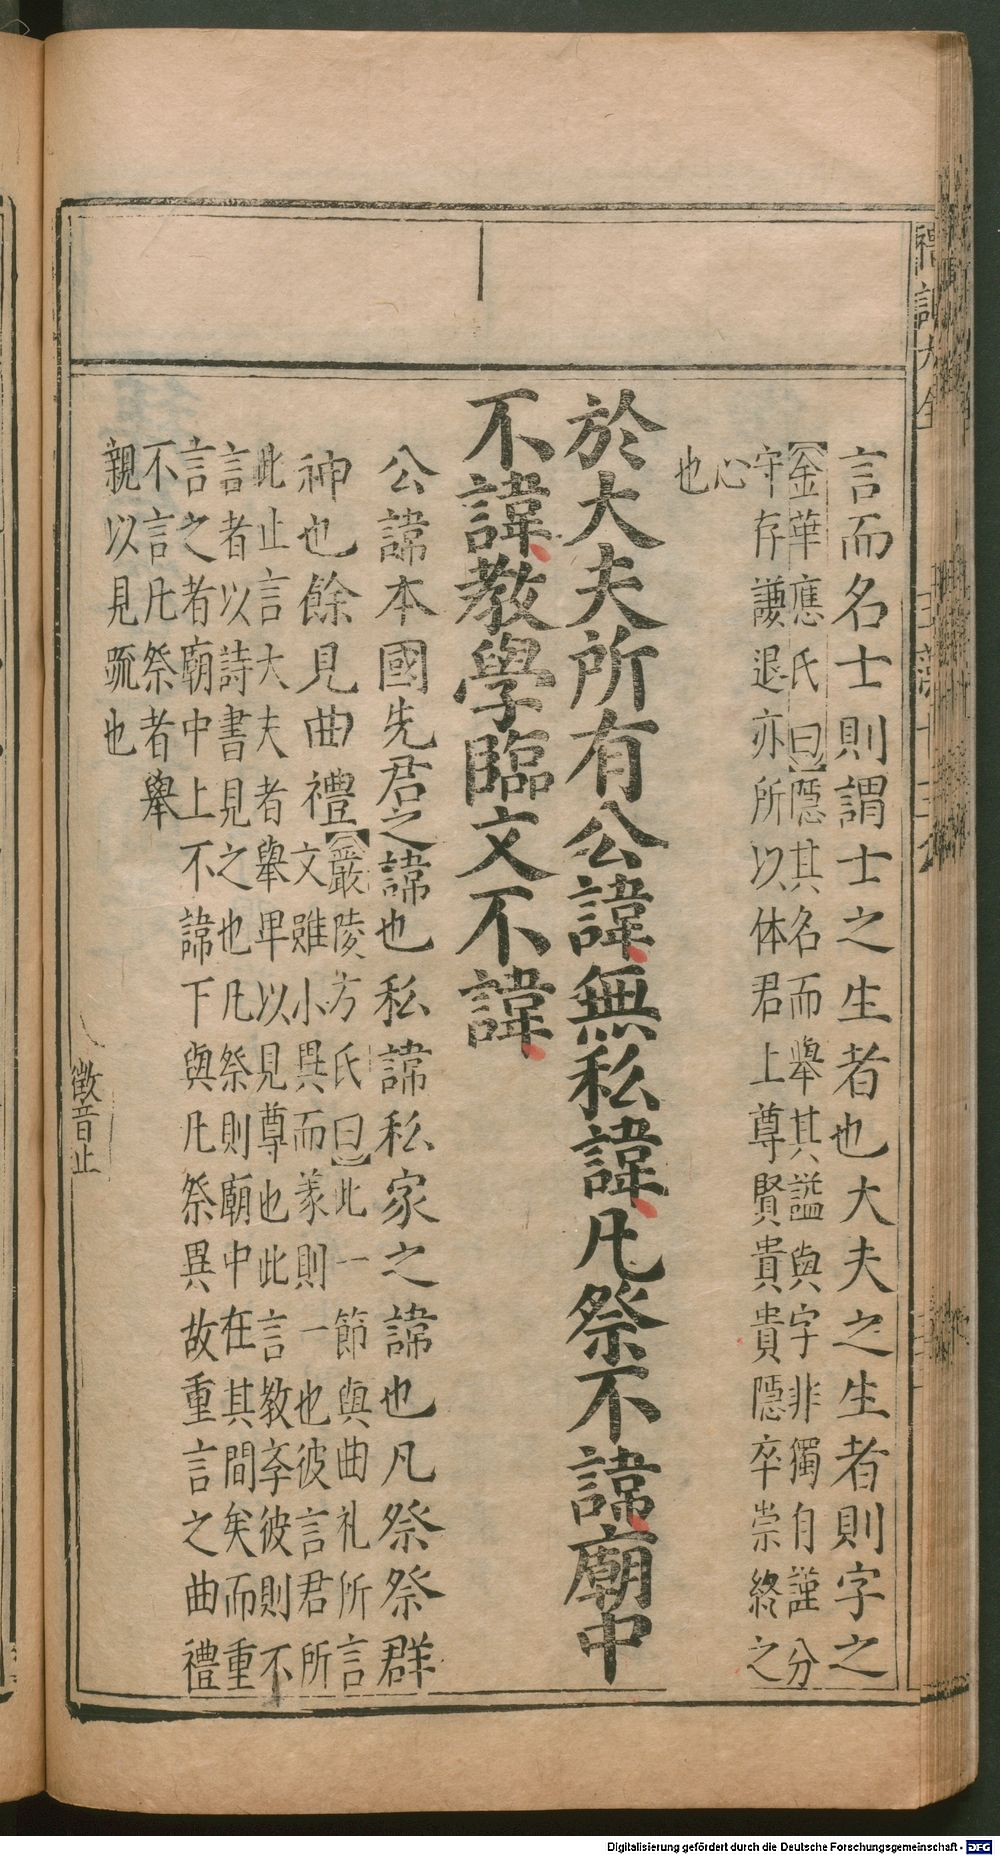 言而名士則謂士之生者也大夫之生者則字之
【金華應氏曰】隱其名而舉其謚與字非獨自謹分
守存謙退亦所以体君上尊賢貴貴隱卒崇終之
心
也
於大夫所有公諱無私諱凡祭不諱廟中
不諱教學臨文不諱
公諱本國先君之諱也私諱私家之諱也凡祭祭群
神也餘見曲禮【嚴陵方氏曰】此一節與曲礼所言
文雖小異而義則一也彼言君所
此止言大夫者舉卑以見尊也此言教斈彼則不
言者以詩書見之也凡祭則廟中在其間矣而重
言之者廟中上不諱下與凡祭異故重言之曲禮
不言凡祭者舉
親以見䟽也
徵音止
禮記大全
Digitalisierung gefördert durch die Deutsche Forschungsgemeinschaft - DFG